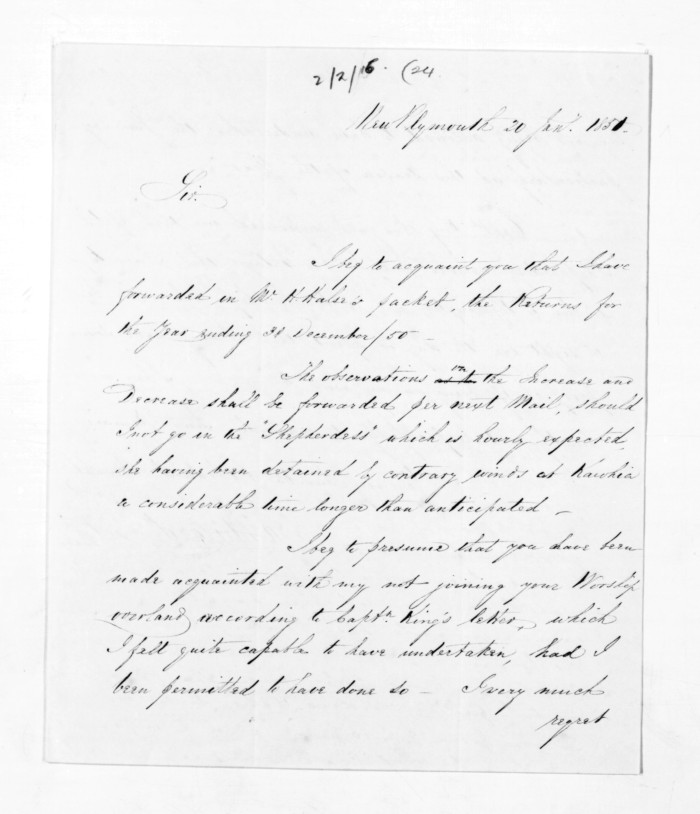 2/2/16. (24
New Plymouth 20 Jany. 1851.
Sir.
I beg to acquaint you that I have
forwarded in Mr. packet, the Returns for
the Year ending 31 December/50 –
The observations on the Increase and
Decrease shall be forwarded per next Mail, should
I not go in the "Shepherdess" which is hourly expected,
she having been detained by contrary winds at Kawhia
a considerable time longer than anticipated –
I beg to presume that you have been
made acquainted with my not joining your Worship
overland according to Captn. King's letter, which
I felt quite capable to have undertaken, had I
been permitted to have done so – I very much
regret